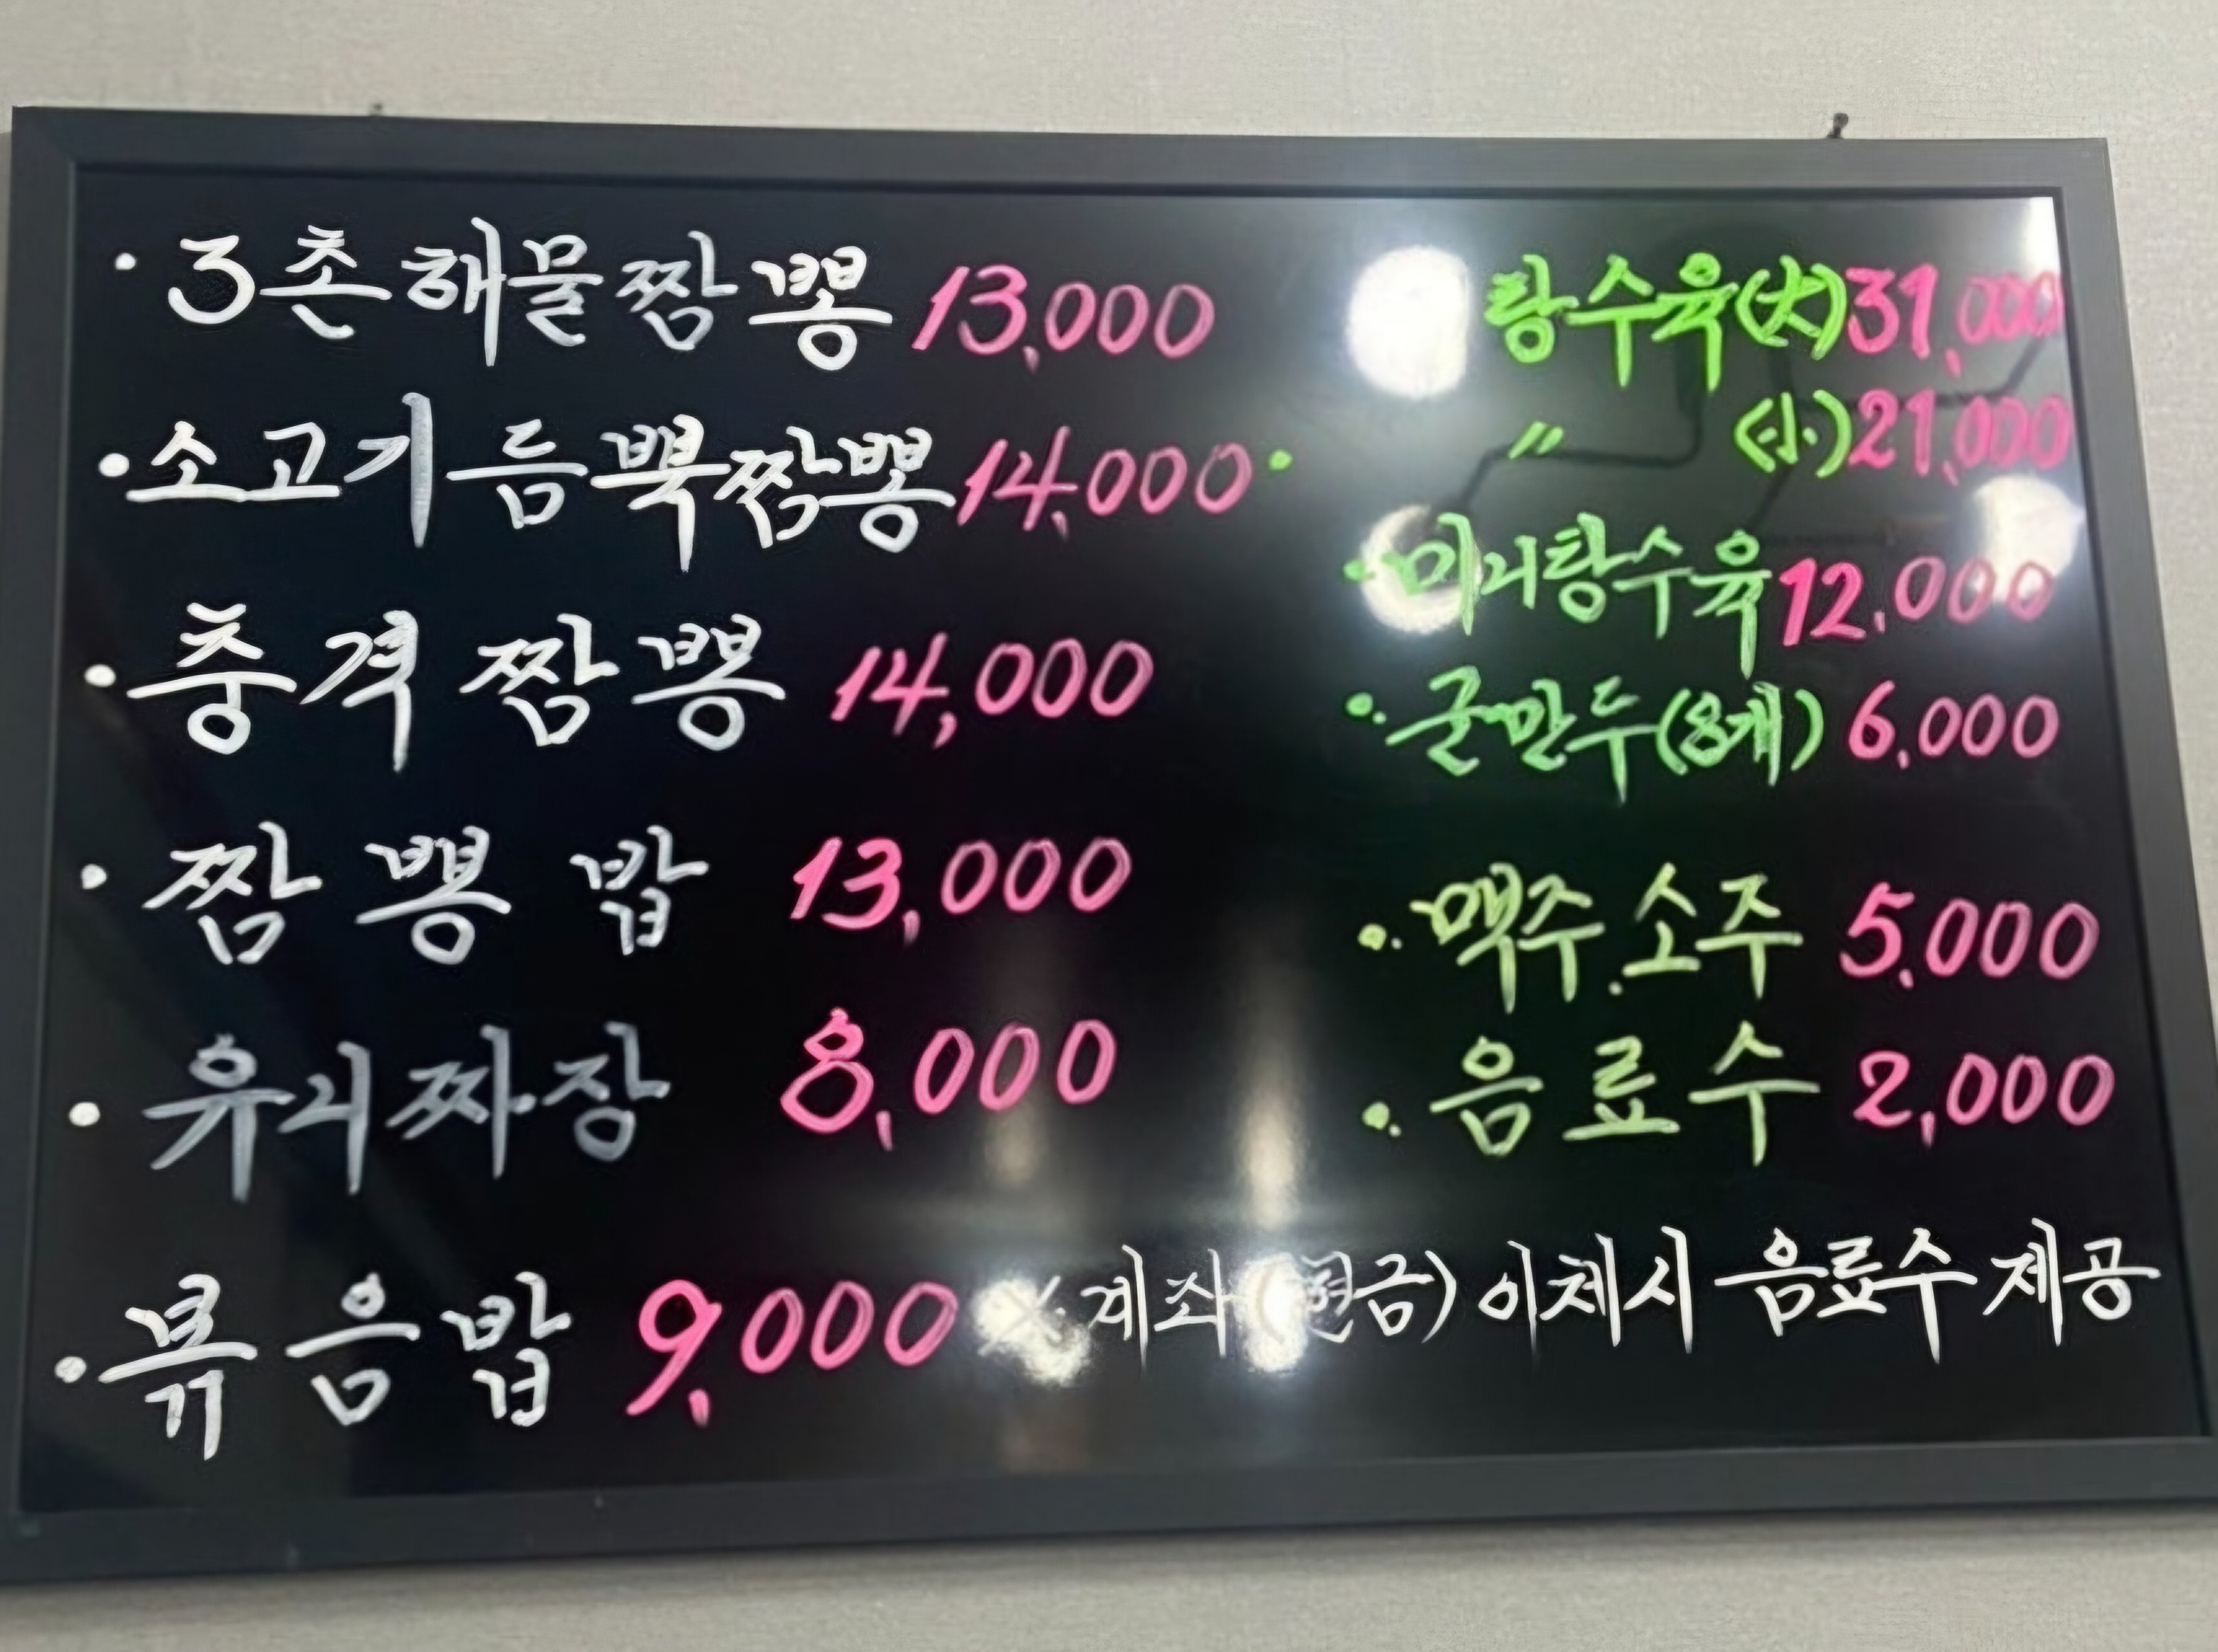 · 3촌해물짬뽕 13,000
· 소고기듬뿍짬뽕 14,000
· 충격짬뽕 14,000
· 짬뽕밥 13,000
· 유리짜장 8,000
· 뽂음밥 9,000
· 탕수육(大) 31,000
〃 (小) 21,000
· 미니탕수육 12,000
· 군만두(8개) 6,000
· 맥주.소주 5,000
· 음료수 2,000
※ 계좌(현금) 이체시 음료수 제공